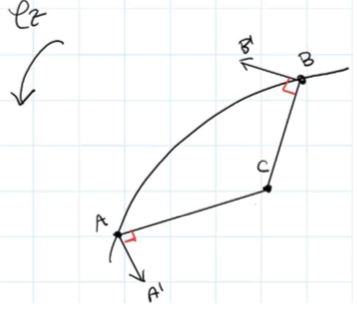 e₂
B'
B
C
A
A'